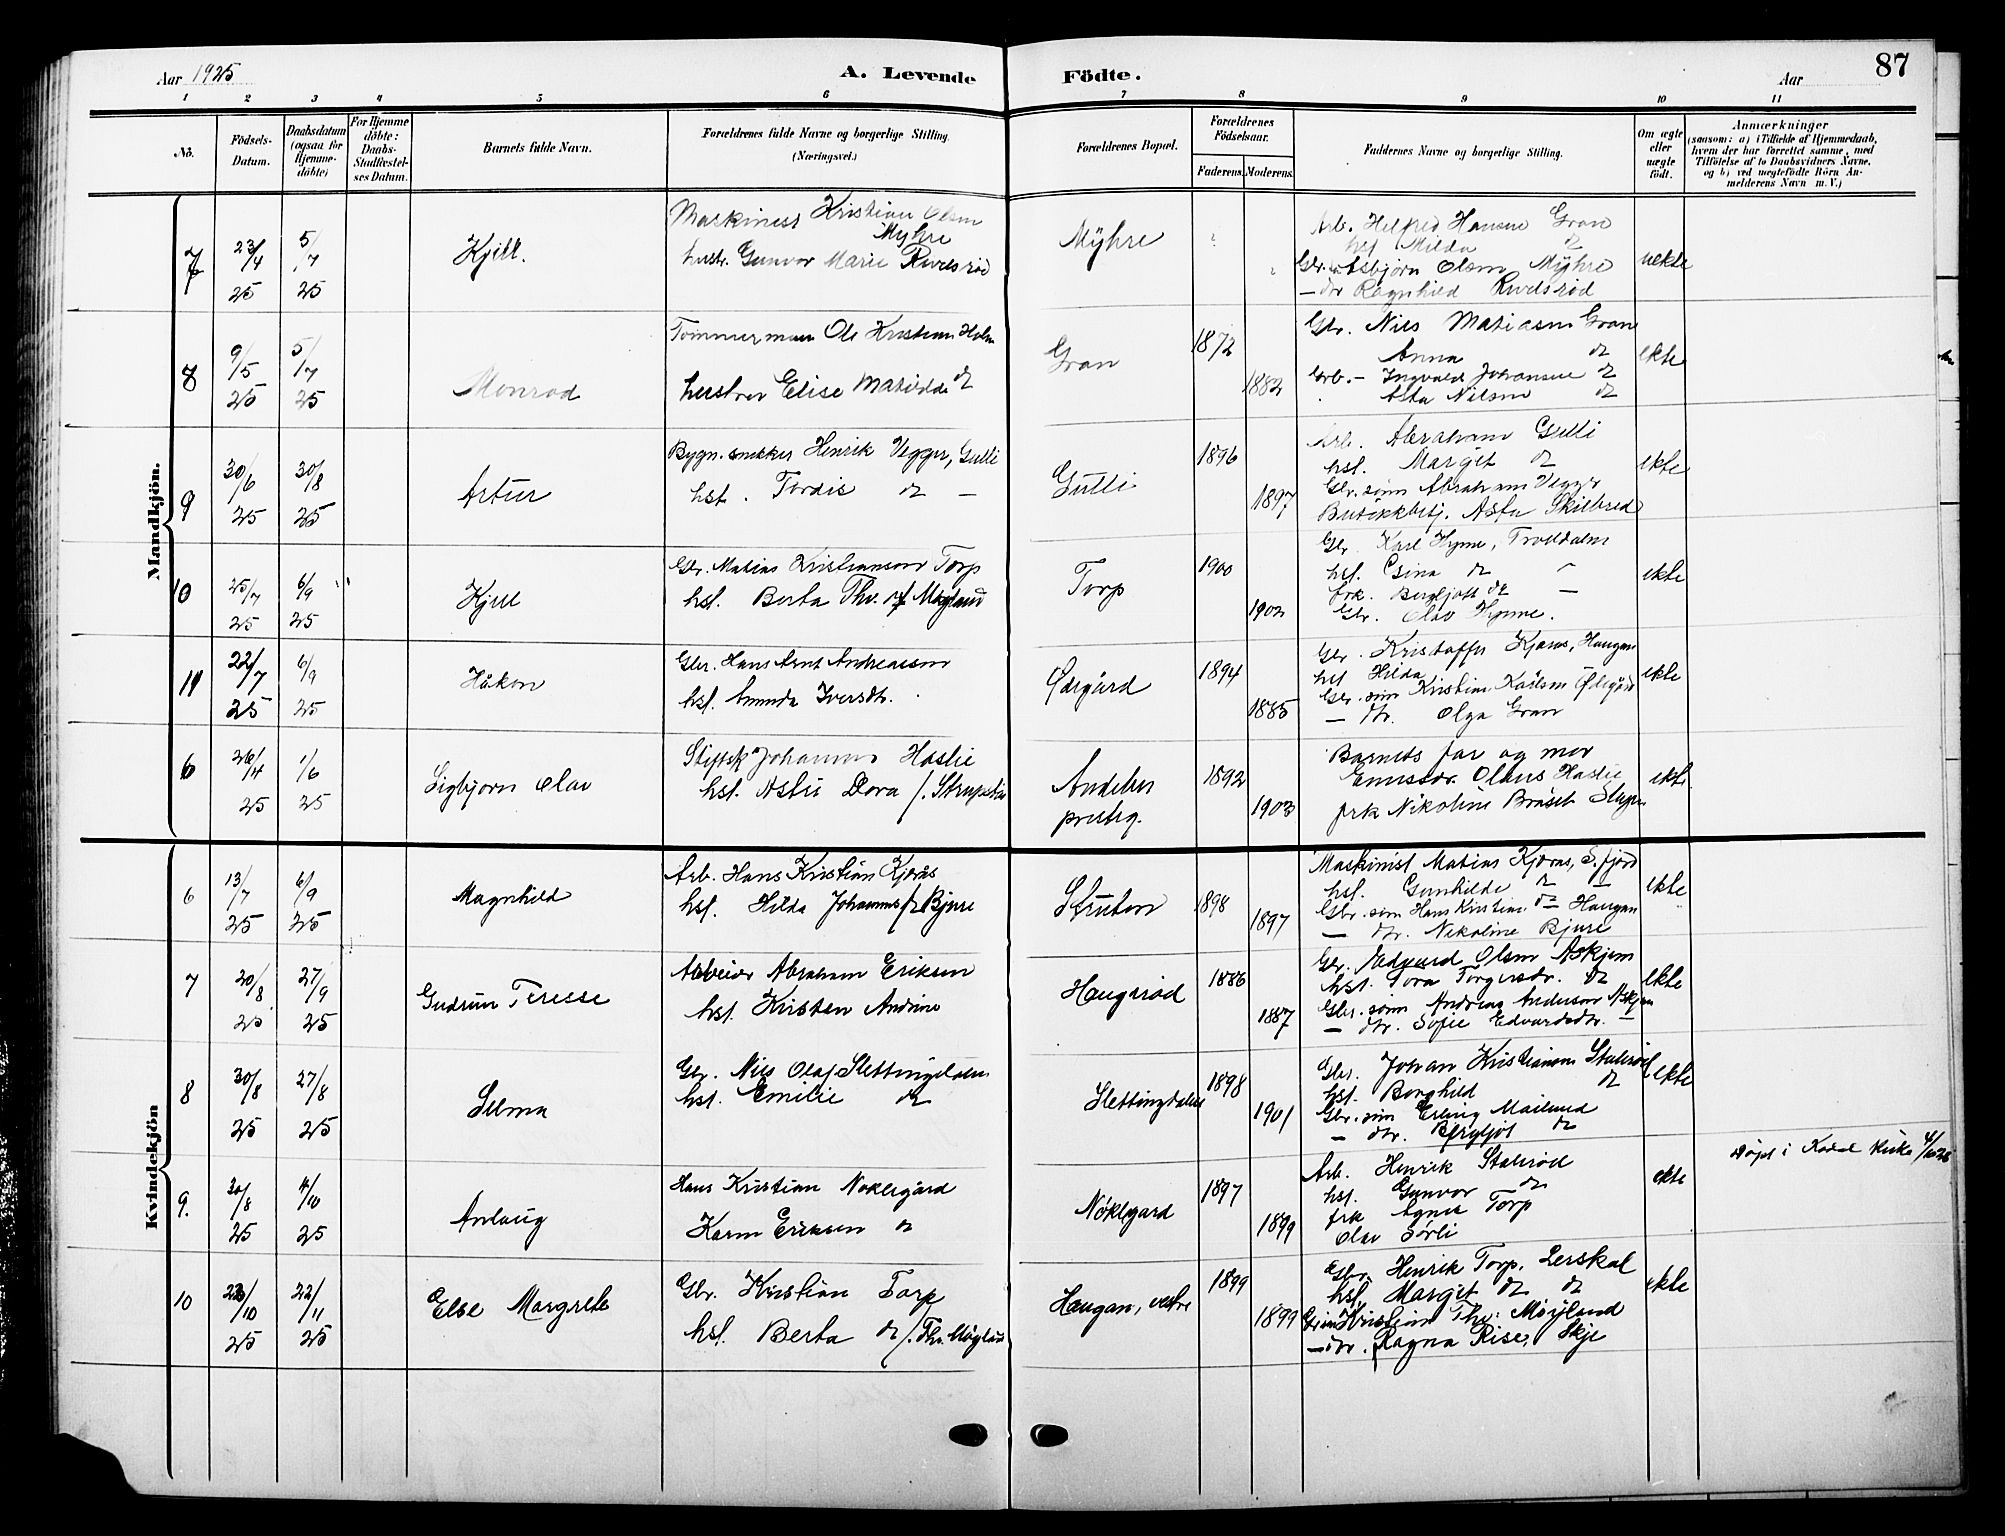 Aar 1925
A. Levende
Födte.
Aar
87
1 2 3 4 5 6 7 8 9 10 11
No.
Födsels-
Datum.
Daabsdatum
(ogsaa for
Hjemme-
döbte)
For Hjemme
döbte:
Daabs-
Stadfæstel-
ses Datum.
Barnets fulde Navn.
Forældrenes fulde Navne og borgerlige Stilling.
(Næringsvei.)
Forældrenes Bopæl.
Forældrenes
Födselsaar.
Faderens. Moderens.
Faddernes Navne og borgerlige Stilling.
Om ægte
eller
uægte
födt.
Anmærkninger
(saasom: a) i Tilfælde af Hjemmedaab,
hvem der har forrettet samme, med
Tilföielse af to Daabsvidners Navne,
og b) ved uægtefödte Börn An-
melderens Navn m. V.)
Mandkjön.
7
23/4 25
5/7 25
Kjell.
Kristian Olsen
Myhre
hustr. Gunvor Marie
Myhre
Arb. Helfred Hansen Gran
Milda do
Gbr. Asbjørn Olsen Myhre
— dtr Ragnhild
uekte
8
9/5 25
5/7 25
Monrad
Tømmermann Ole Kristian Holm
hustru Elise Matilde do
Gran
1872
1882
Gbr. Nils Matiasen Gran
Anna do
Grb. - Ingvald Johansen do
Asta Nilsen do
ekte
9
30/6 25
30/8 25
Artur
Bygn.snekker Henrik Vegger, Gulli
hst. Tordis do —
Gulli
1896
1897
Arb. Abraham Gulli
hst. Margit do
Gbr. sønn Abraham Vegger
Butikkbetj. Asta Skilbred
ekte
10
25/7 25
6/9 25
Kjell
Gbr. Matias Kristiansen Torp
hst. Berta Thv. Møyland
Torp
1900
1902
Gbr. Karl Hynne, Trolldalen
hst. Esina do
frk. Bergljott do —
Gbr. Olav Hynne.
ekte
11
22/7 25
6/9 25
Håkon
Gbr. Hans Arnt Andreassen
hst. Amunda Iversdtr.
Ødegård
1894
1885
Gbr. Kristoffer Kjærås, Haugan
hst Hilda
Gbr. sønn Kristian Karlsen Ødegård
— dtr. Olga Gran
ekte
6
26/4 25
1/6 25
Sigbjørn Olav
Johannes Haslie
hst. Astri Dora f.
Andebu
prestg.
1892
1903
Barnets far og mor
Olaus Haslie
frk Nikoline Bråset
ekte
Kvindekjön
6
13/7 25
6/9 25
Magnhild
Arb. Hans Kristian Kjærås
hst. Hilda Johannes f. Bjure
Struten
1898
1897
Maskinist Matias Kjærås, S.fjord
hst. Gunhilde do —
Gbr. sønn Hans Kristian do Haugan
— dtr. Nikoline Bjure
ekte
7
20/8 25
27/9 25
Gudrun Teresse
Arbeider Abraham Eriksen
hst. Kristen Andrine
Haugsrød
1886
1887
Gbr. Edvard Olsen Askjem
hst. Tora Torgersdr. do
Gbr. sønn Andreas Andersen Askjem
— dtr. Sofie Edvardsdtr. —
ekte
8
30/8 25
27/8 25
Selma
Gbr. Nils Olaf Slettingdalen
hst. Emilie do
Slettingdalen
1898
1901
Gbr. Johan Kristiansen Stalsrød
hst. Borghild do
Gbr. sønn Erling Møiland
— dtr. Bergljot do
ekte
9.
30/8 25
4/10 25
Anlaug
Hans Kristian Noklegård
Karen Eriksen do
Nøklegard
1897
1899
Arb. Henrik Stalsrød
hst. Gunvor do
frk Agnes Torp
Olav Sørli
ekte
Døpt i Kodal kirke 4/10 25
10
23/10 25
22/11 25
Else Margrete
Gbr. Kristian Torp
hst. Berta do f. Thv. Møyland
Haugan, vestre
1899
1899
Gbr. Henrik Torp, Lerskal
hst. Margit do do
Kristian Thv. Møyland
— dtr. Ragna Rise, Skje
ekte